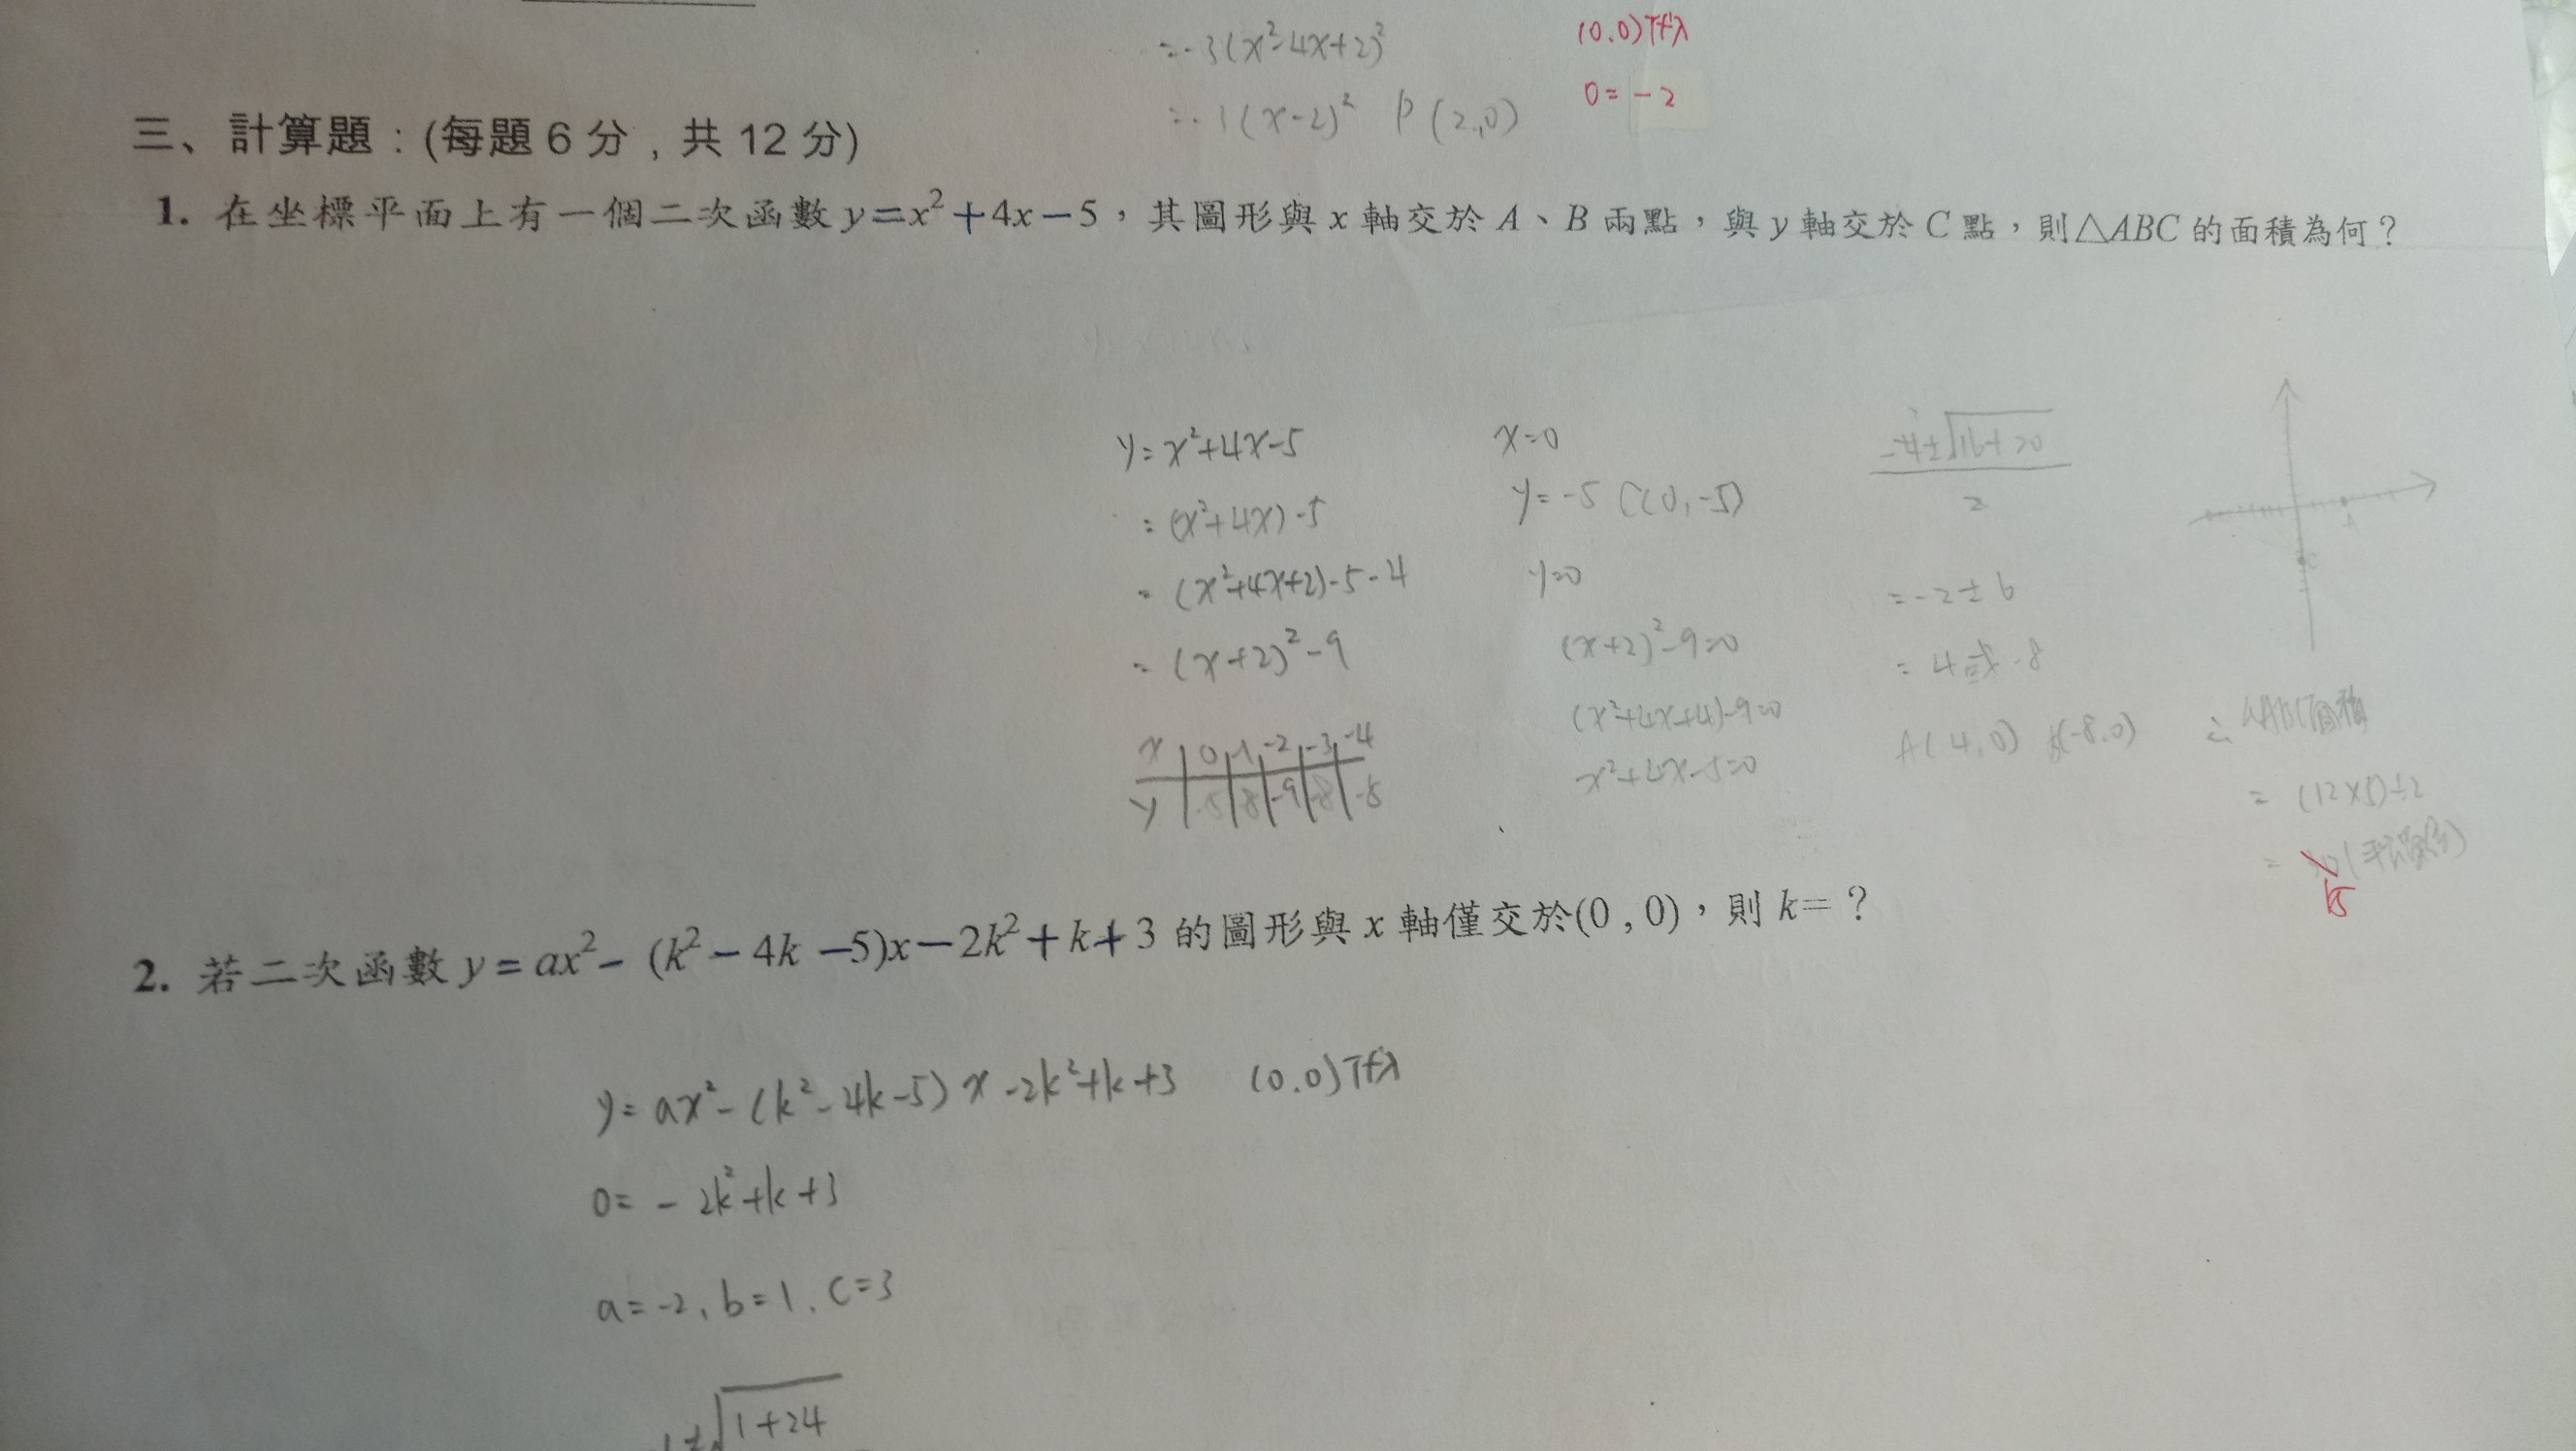 =-3(x²-4x+2)²
=-3(x-2)² P(2,0)
(0.0)代入
0=-2
三、計算題:(每題6分,共12分)
1. 在坐標平面上有一個二次函數y=x²+4x-5,其圖形與x軸交於A、B兩點,與y軸交於C點,則△ABC的面積為何?
y=x²+4x-5
=(x²+4x)-5
=(x²+4x+2)-5-4
=(x+2)²-9
x 0 -1 -2 -3 -4
y -5 -8 -9 -8 -5
x=0
y=-5 C(0,-5)
y=0
(x+2)²-9=0
(x²+4x+4)-9=0
x²+4x-5=0
-4±√16+20
2
=-2±6
=4或-8
A(4,0) B(-8,0)
A
C
∴△ABC面積
=(12×5)÷2
15
2. 若二次函數y=ax²-(k²-4k-5)x-2k²+k+3的圖形與x軸僅交於(0,0),則k=?
y=ax²-(k²-4k-5)x-2k²+k+3 (0.0)代入
0=-2k²+k+3
a=-2、b=1、c=3
-1±√1+24